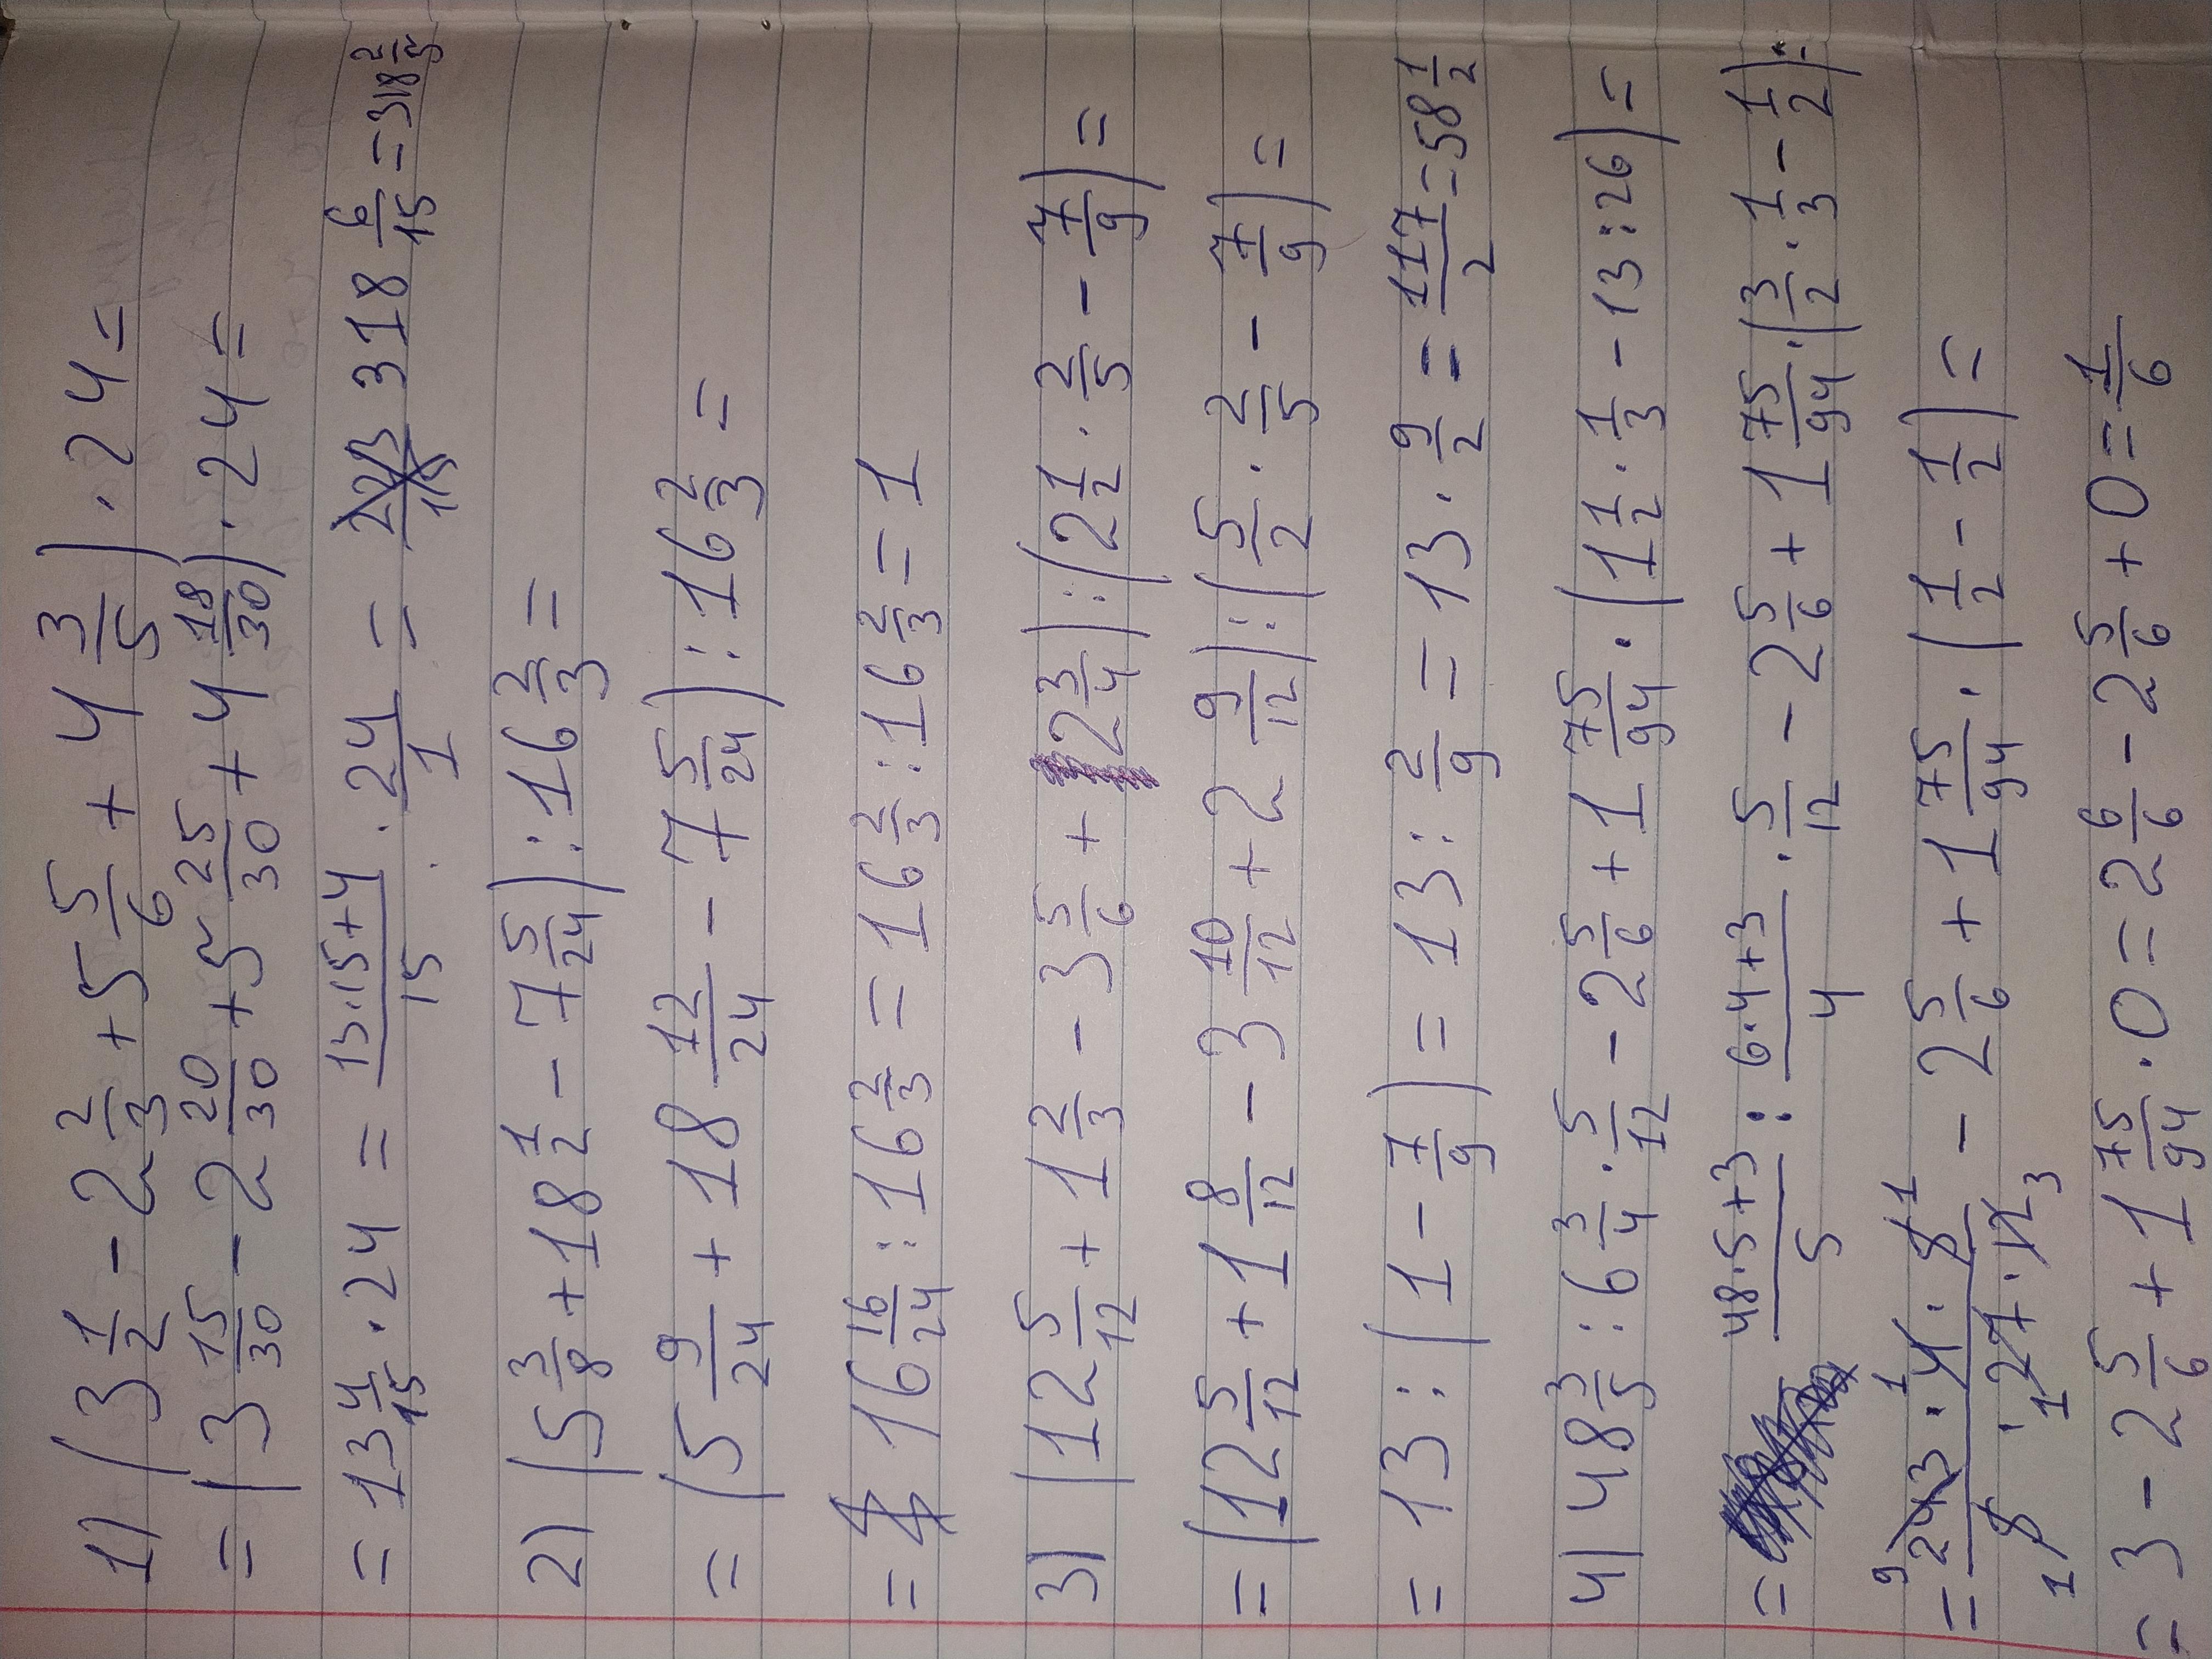 1) (3 1/2 - 2 2/3 + 5 5/6 + 4 3/5) · 24 =
= (3 15/30 - 2 20/30 + 5 25/30 + 4 18/30) · 24 =
= 13 4/15 · 24 = 13·15+4/15 · 24/1 = 318 6/15 = 318 2/5
2) (5 3/8 + 18 1/2 - 7 5/24) : 16 2/3 =
= (5 9/24 + 18 12/24 - 7 5/24) : 16 2/3 =
= 16 16/24 : 16 2/3 = 16 2/3 : 16 2/3 = 1
3) (12 5/12 + 1 2/3 - 3 5/6 + 2 3/4) : (2 1/2 · 2/5 - 7/9) =
= (12 5/12 + 1 8/12 - 3 10/12 + 2 9/12) : (5/2 · 2/5 - 7/9) =
= 13 : (1 - 7/9) = 13 : 2/9 = 13 · 9/2 = 117/2 = 58 1/2
4) 48 3/5 : 6 3/4 · 5/12 - 2 5/6 + 1 75/94 · (1 1/2 · 1/3 - 13 : 26) =
= 48·5+3/5 : 6·4+3/4 · 5/12 - 2 5/6 + 1 75/94 · (3/2 · 1/3 - 1/2) =
= 243 · 4 · 5/5 · 27 · 12 - 2 5/6 + 1 75/94 · (1/2 - 1/2) =
= 3 - 2 5/6 + 1 75/94 · 0 = 2 6/6 - 2 5/6 + 0 = 1/6